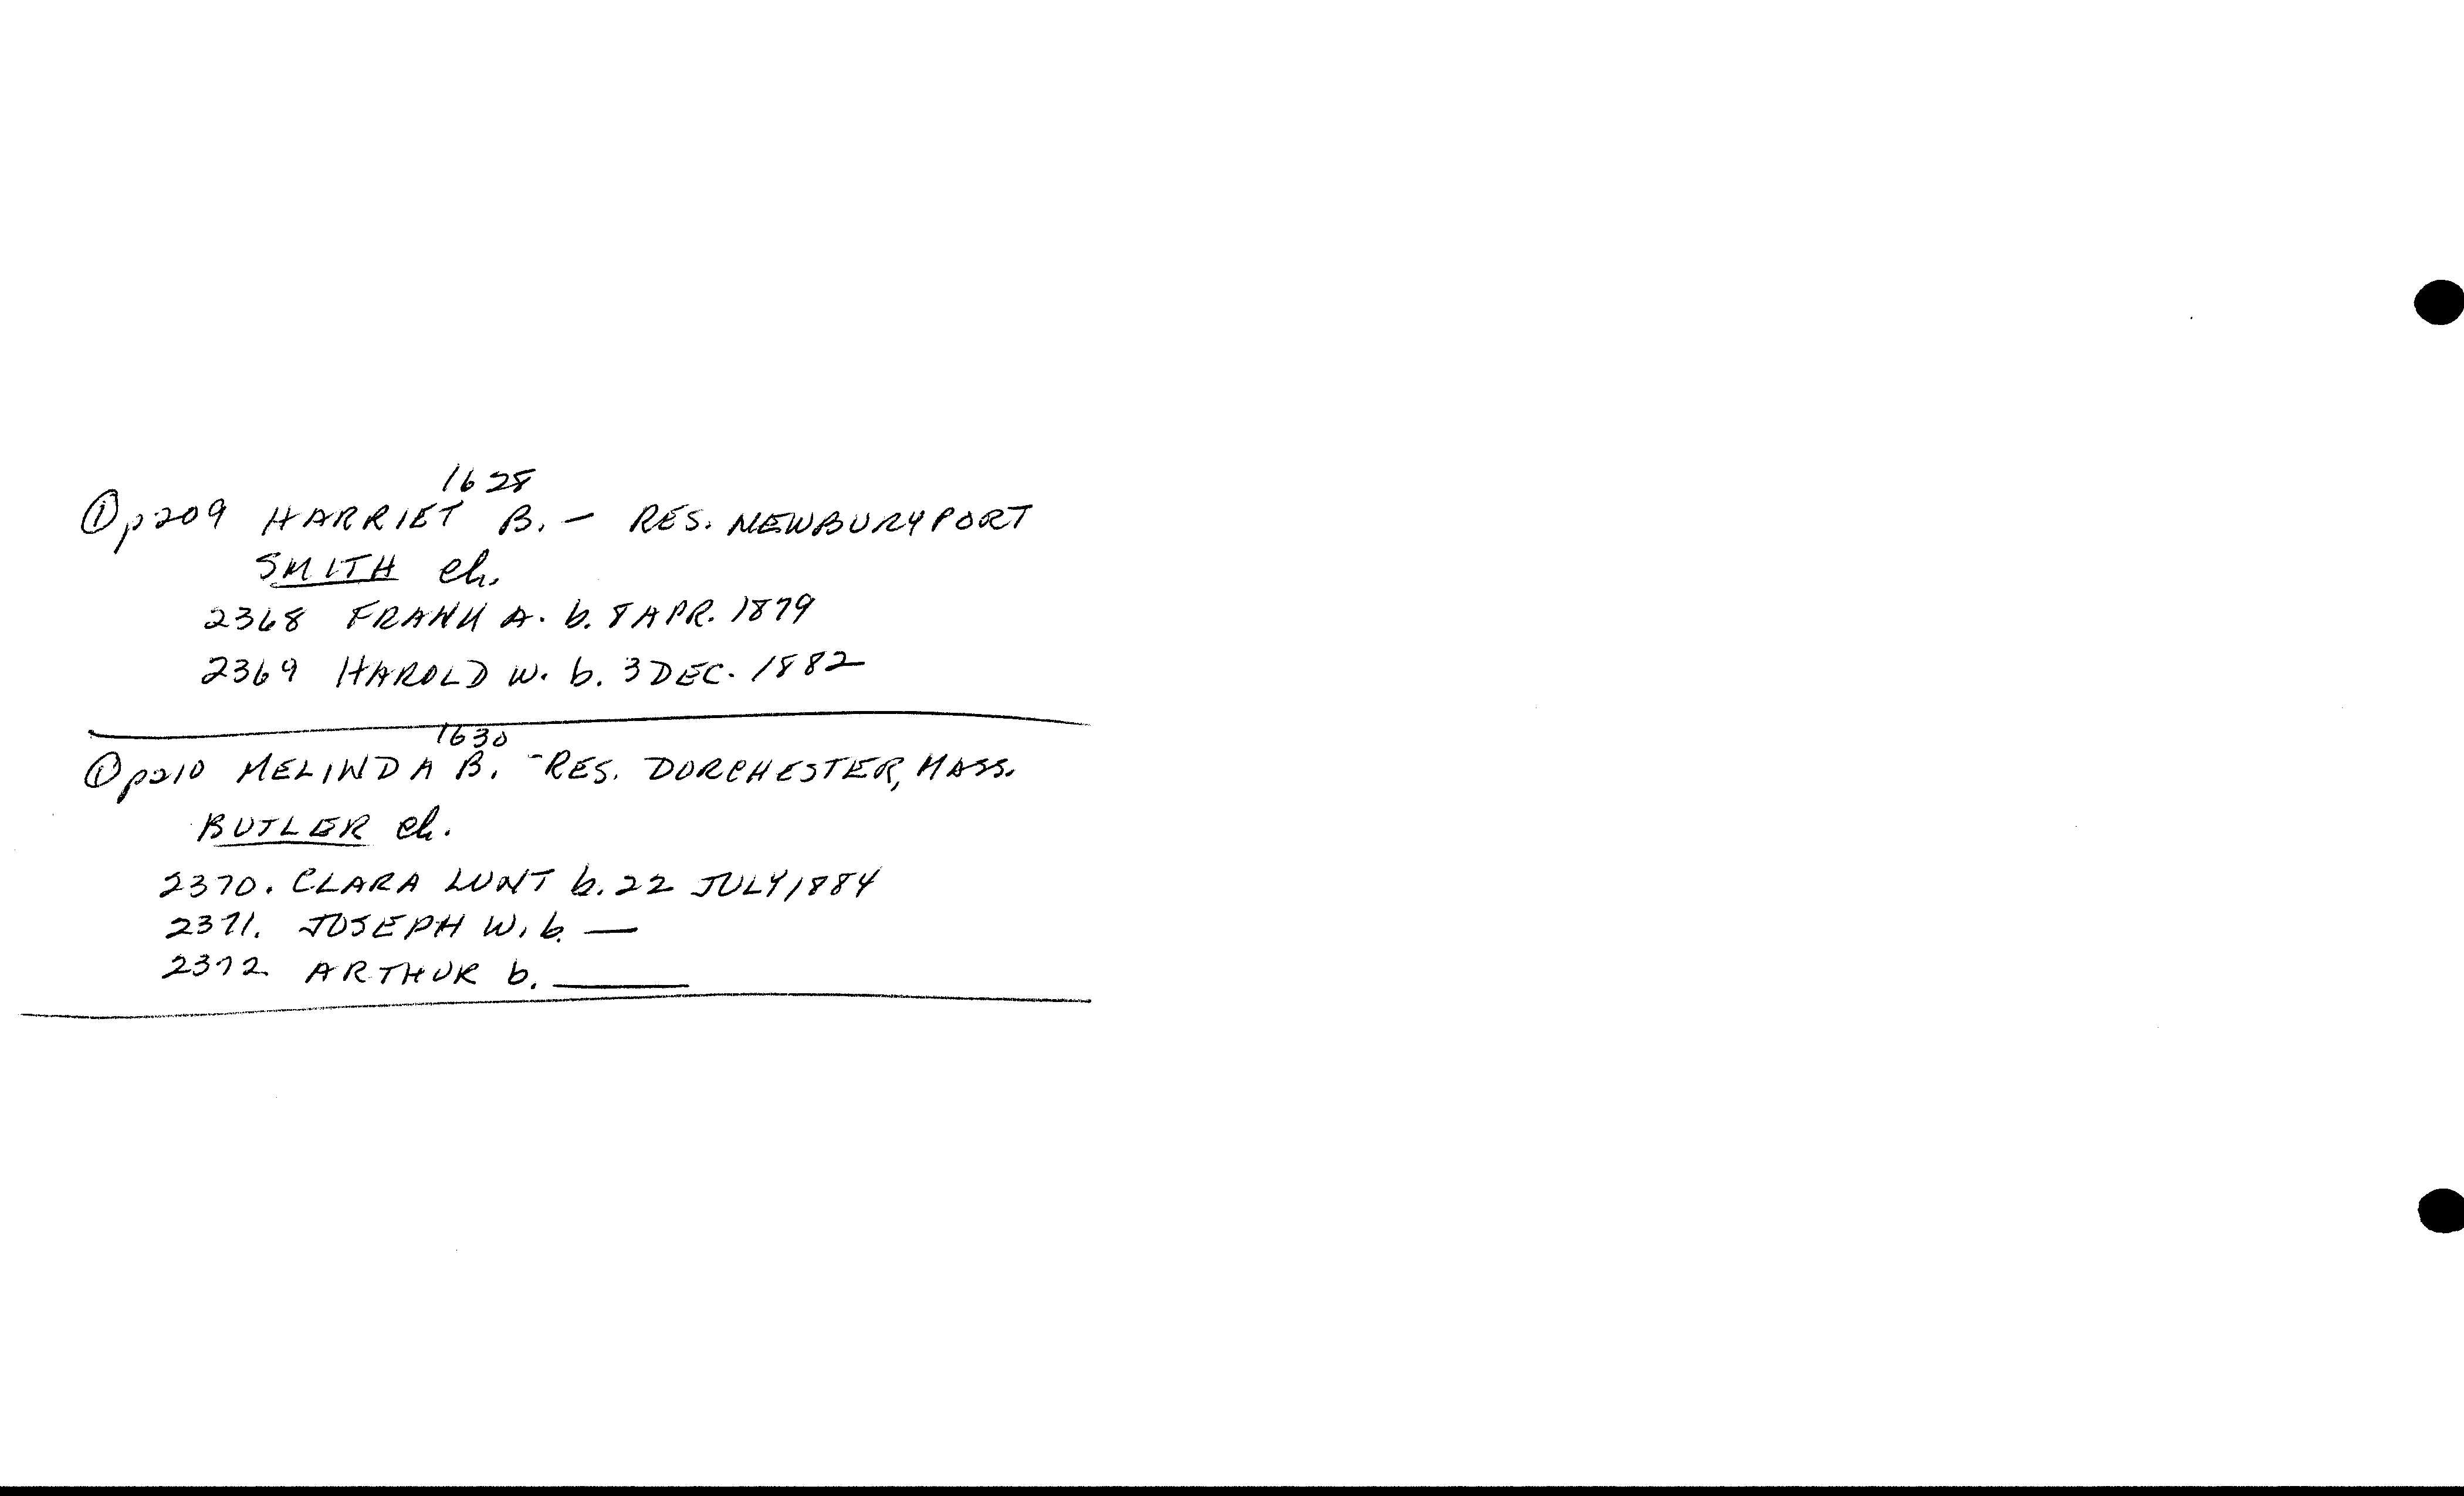 1628
① p209 HARRIET B. - RES. NEWBURYPORT
SMITH ch.
2368 FRANK A. b. 8 APR. 1879
2369 HAROLD W. b. 3 DEC. 1882
1630
① p210 MELINDA B. - RES. DORCHESTER, MASS.
BUTLER ch.
2370. CLARA LUNT b. 22 JULY 1884
2371. JOSEPH W. b. —
2372 ARTHUR b. ____